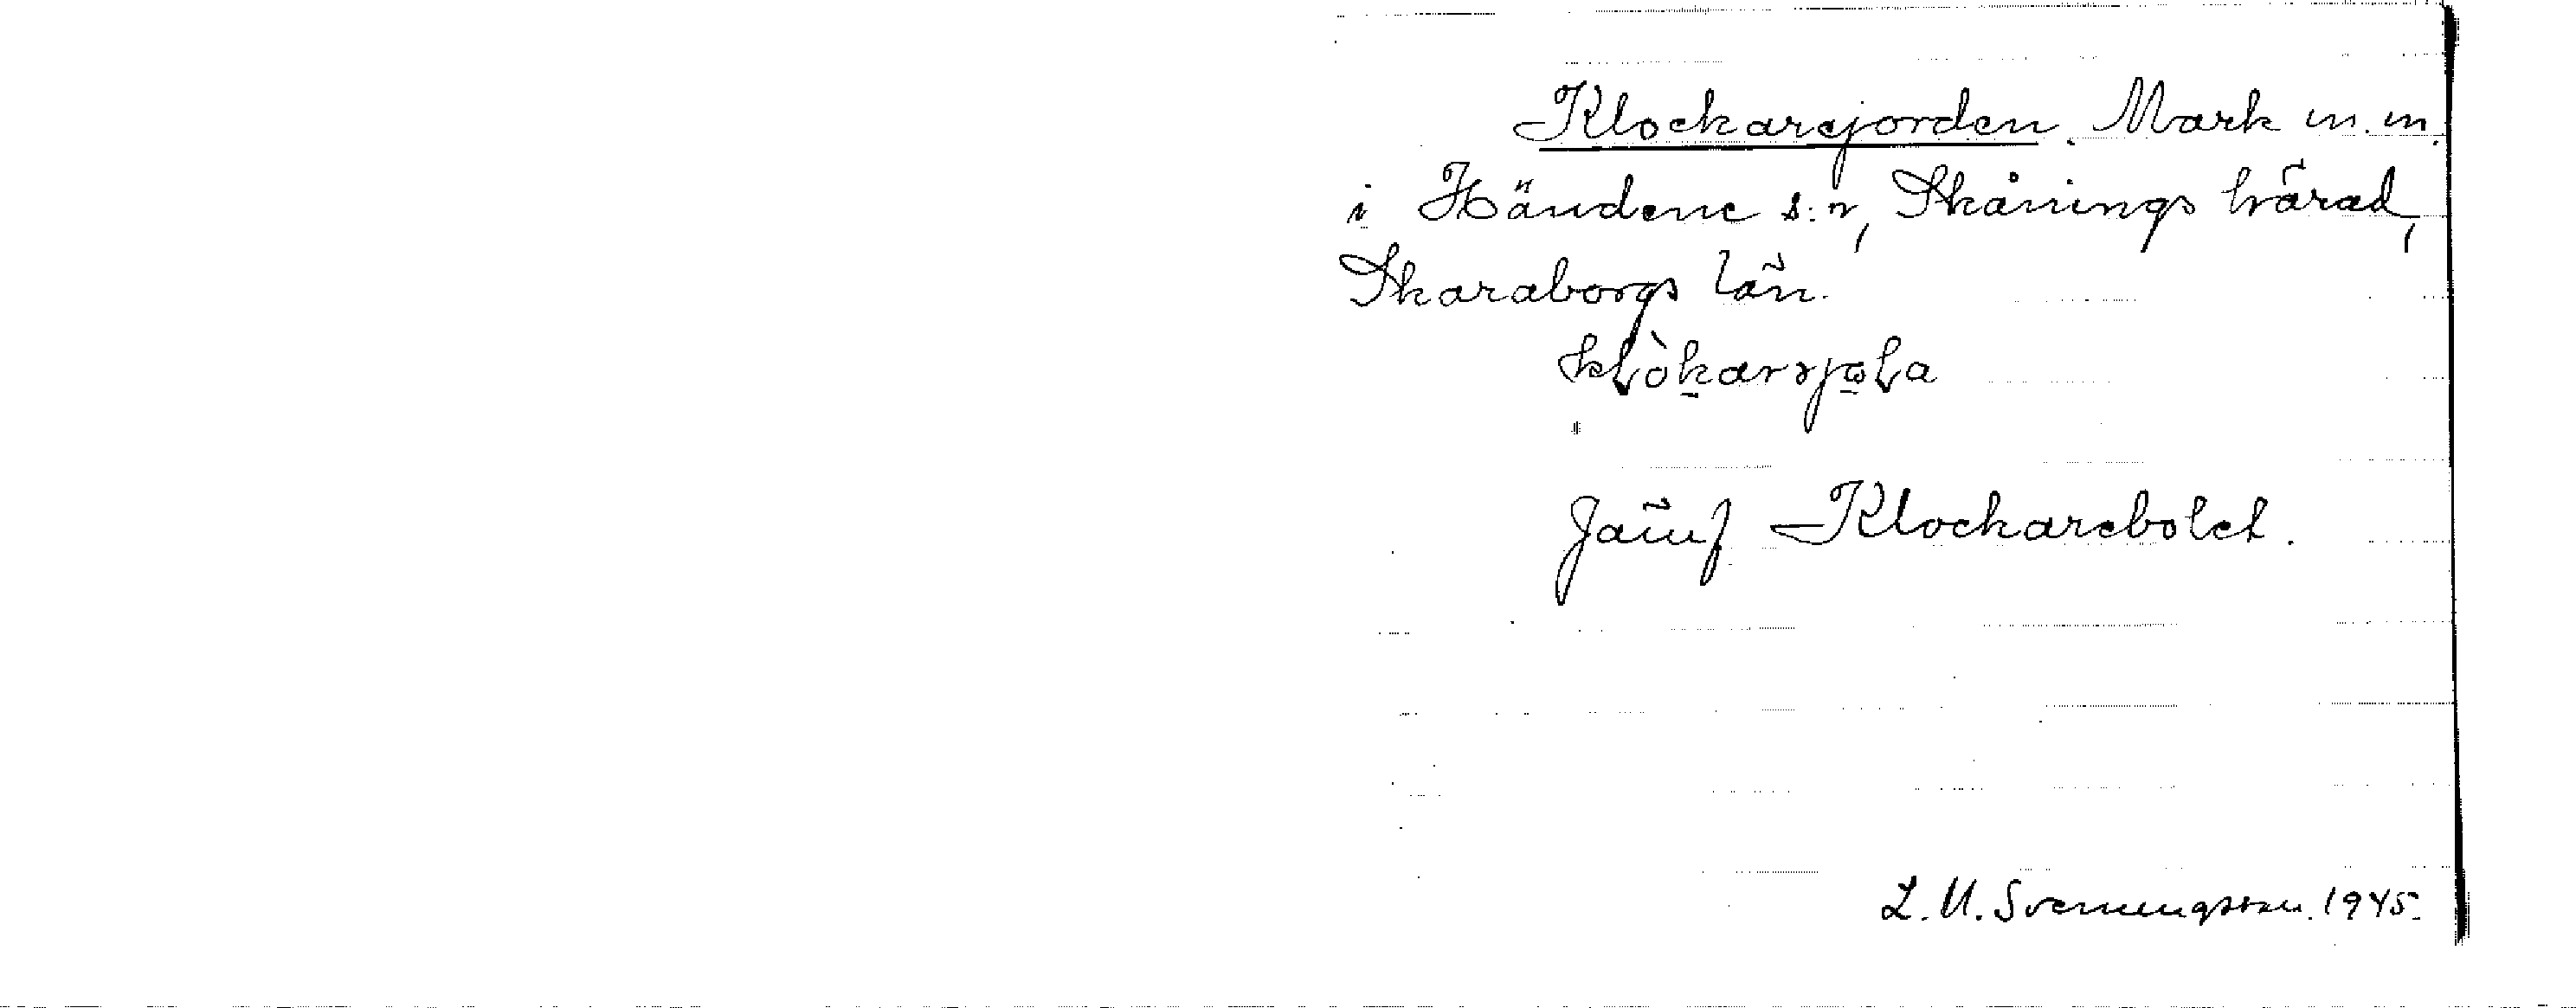 Klockarejorden. Mark m.m.
i Händene s:n, Skånings härad,
Skaraborgs län.
Jämf Klockarebolet.
L. U. Svenungsson. 1945.